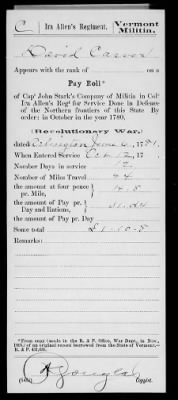 C | Ira Allen's Regiment. | Vermont Militia.
David Carver
Appears with the rank of on a
Pay Roll*
of Capt John Stark's Company of Militia in Col
Ira Allen's Regt for Service Done in Defence
of the Northern frontiers of this State By
order: in October in the year 1780.
(Revolutionary War,)
dated Arlington June 6, 1781.
When Entered Service Oct 12, 17
Number Days in Service 12
Number of Miles Travel 44
the amount at four pence
pr. Mile, 14.8
the amount of Pay pr.
Day and Rations,
the amount of Pay pr. Day
Some total £1.10.8
Remarks:
*From copy (made in the R. & P. Office, War Dept., in Nov.,
of an original record borrowed from the State of Vermont.—
R. & P.
Copyist.